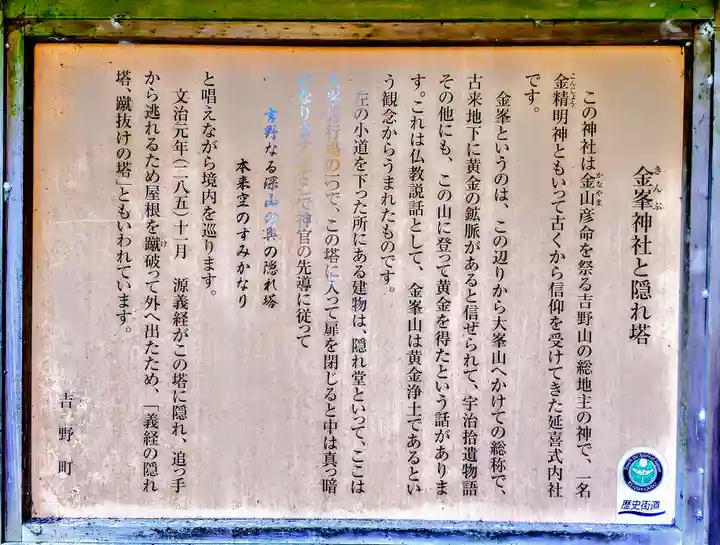 金峯神社と隠れ塔
きんぷ
この神社は金山彦命を祭る吉野山の総地主の神で、一名
かなやま
金精明神ともいって古くから信仰を受けてきた延喜式内社
こんじょう
です。
金峯というのは、この辺りから大峯山へかけての総称で、
古来地下に黄金の鉱脈があると信ぜられて、宇治拾遺物語
その他にも、この山に登って黄金を得たという話がありま
す。これは仏教説話として、金峯山は黄金浄土であるとい
う観念からうまれたものです。
左の小道を下った所にある建物は、隠れ堂といって、ここは
行場の一つで、この塔に入って扉を閉じると中は真っ暗
になります。そこで神官の先導に従って
吉野なる深山の奥の隠れ塔
本来空のすみかなり
と唱えながら境内を巡ります。
文治元年(一一八五)十一月 源義経がこの塔に隠れ、追っ手
から逃れるため屋根を蹴破って外へ出たため、「義経の隠れ
け
塔、蹴抜けの塔」ともいわれています。
吉野町
歴史街道